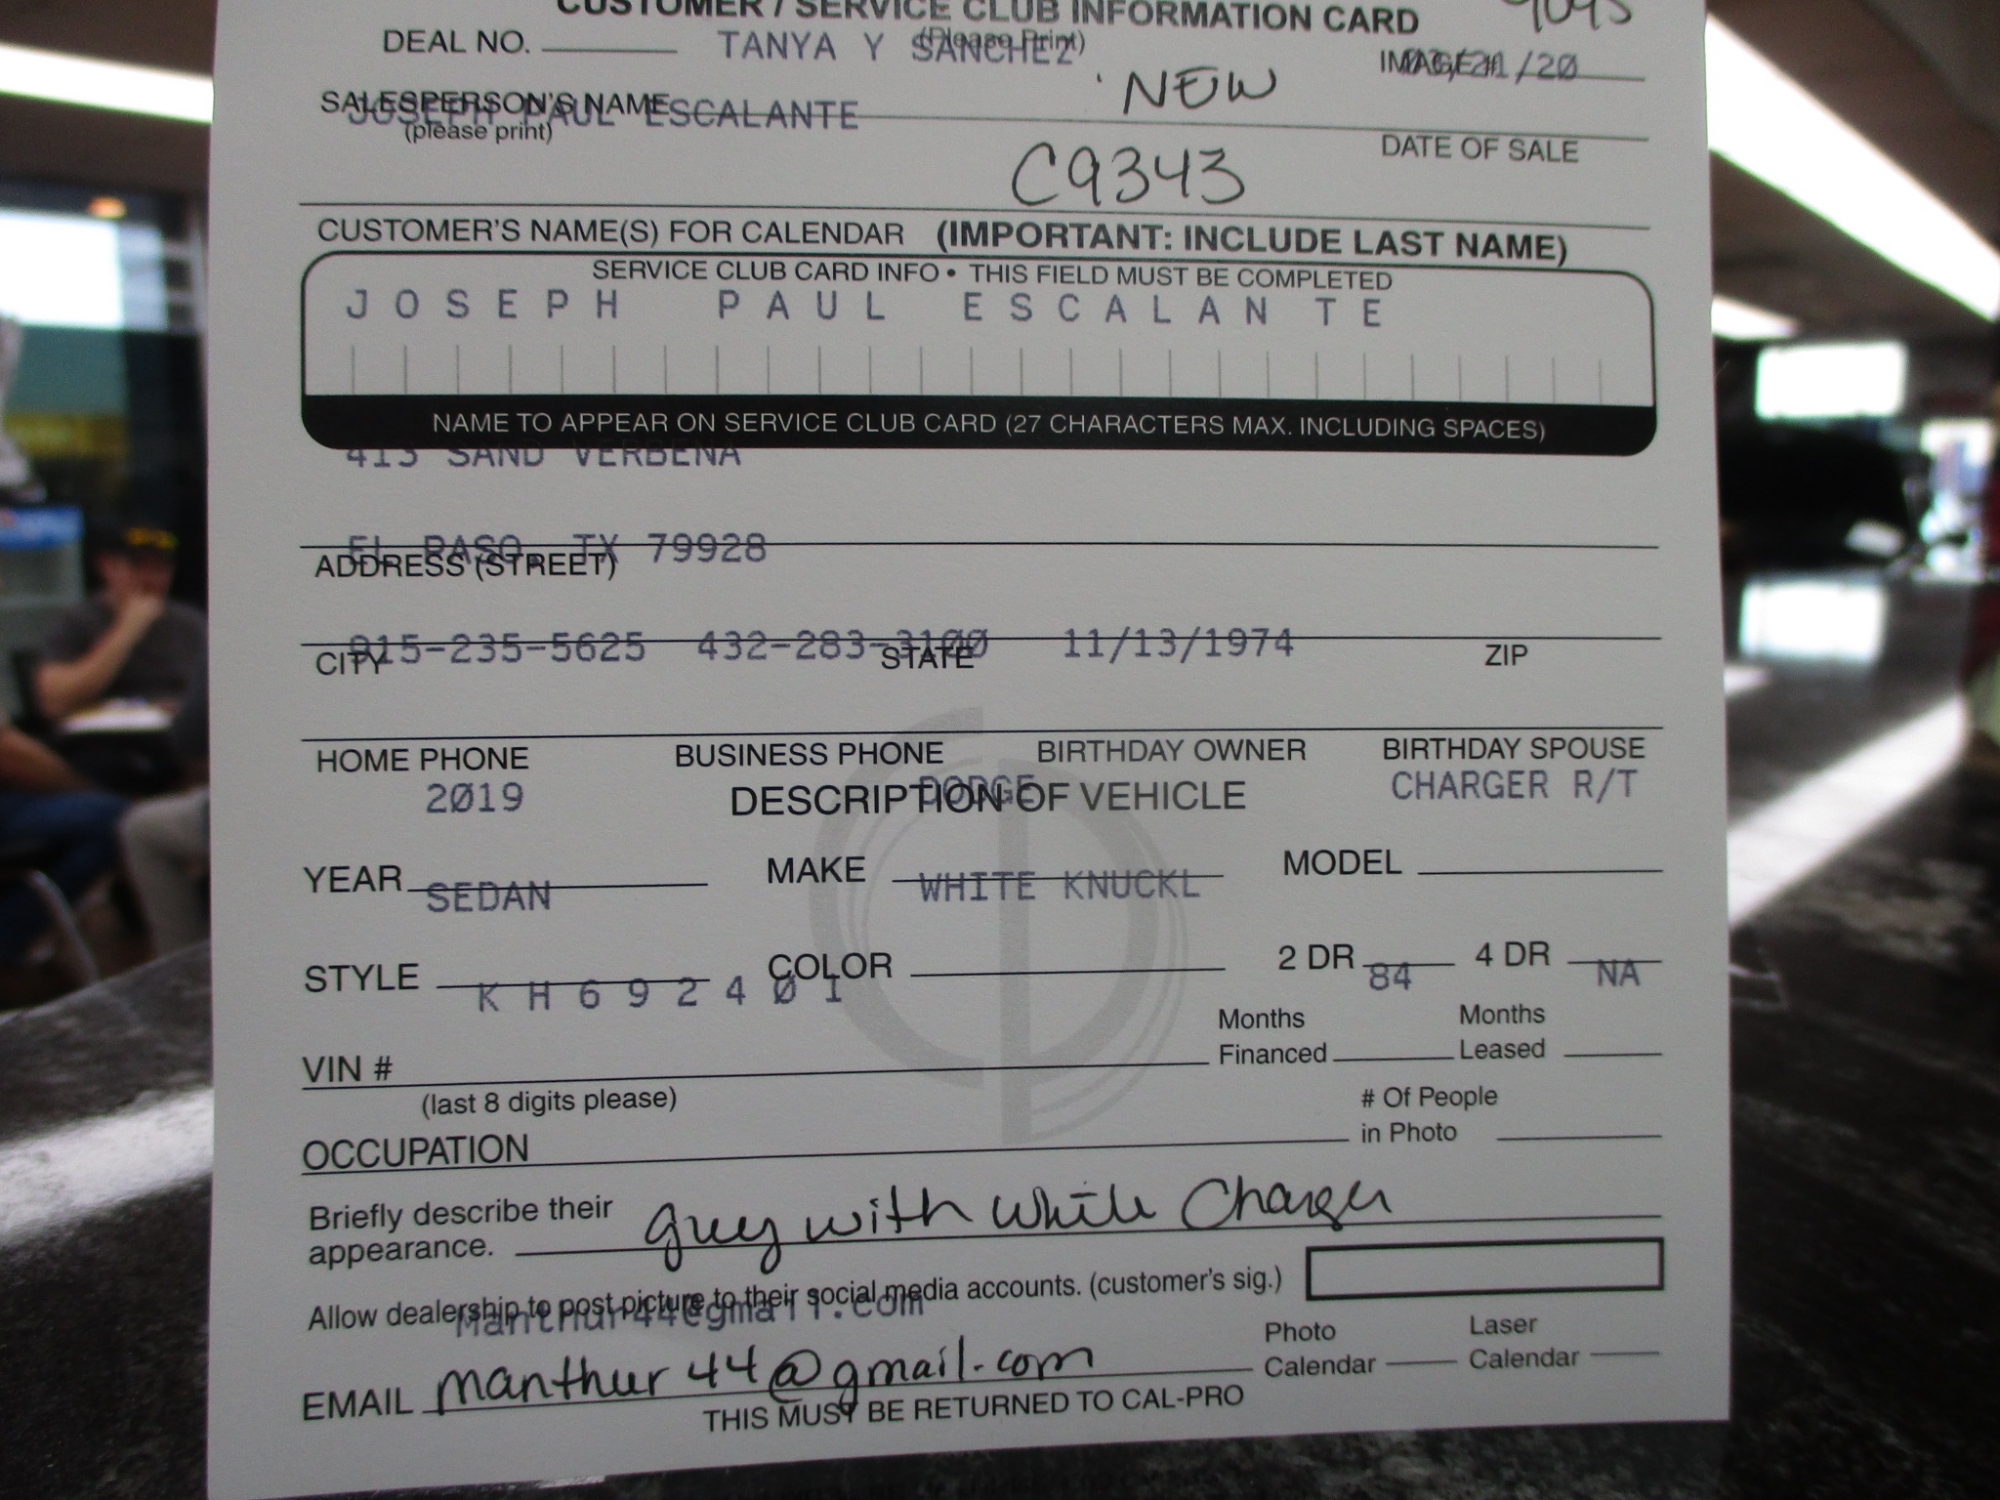 CUSTOMER / SERVICE CLUB INFORMATION CARD
(Please Print)
DEAL NO. TANYA Y SANCHEZ IMAGE# /20
SALESPERSON'S NAME NEW
JOSEPH PAUL ESCALANTE
(please print) DATE OF SALE
C9343
CUSTOMER'S NAME(S) FOR CALENDAR (IMPORTANT: INCLUDE LAST NAME)
SERVICE CLUB CARD INFO • THIS FIELD MUST BE COMPLETED
JOSEPH PAUL ESCALANTE
NAME TO APPEAR ON SERVICE CLUB CARD (27 CHARACTERS MAX. INCLUDING SPACES)
413 SAND VERBENA
EL PASO, TX 79928
ADDRESS (STREET)
915-235-5625 432-283-3100 11/13/1974
CITY STATE ZIP
HOME PHONE BUSINESS PHONE BIRTHDAY OWNER BIRTHDAY SPOUSE
2019 DODGE CHARGER R/T
DESCRIPTION OF VEHICLE
YEAR MAKE MODEL
SEDAN WHITE KNUCKL
STYLE COLOR 2 DR 84 4 DR NA
KH692401
Months Financed Months Leased
VIN #
(last 8 digits please)
# Of People in Photo
OCCUPATION
Briefly describe their appearance. guy with white Charger
Allow dealership to post picture to their social media accounts. (customer's sig.)
manthur44@gmail.com
EMAIL manthur44@gmail.com Photo Calendar Laser Calendar
THIS MUST BE RETURNED TO CAL-PRO